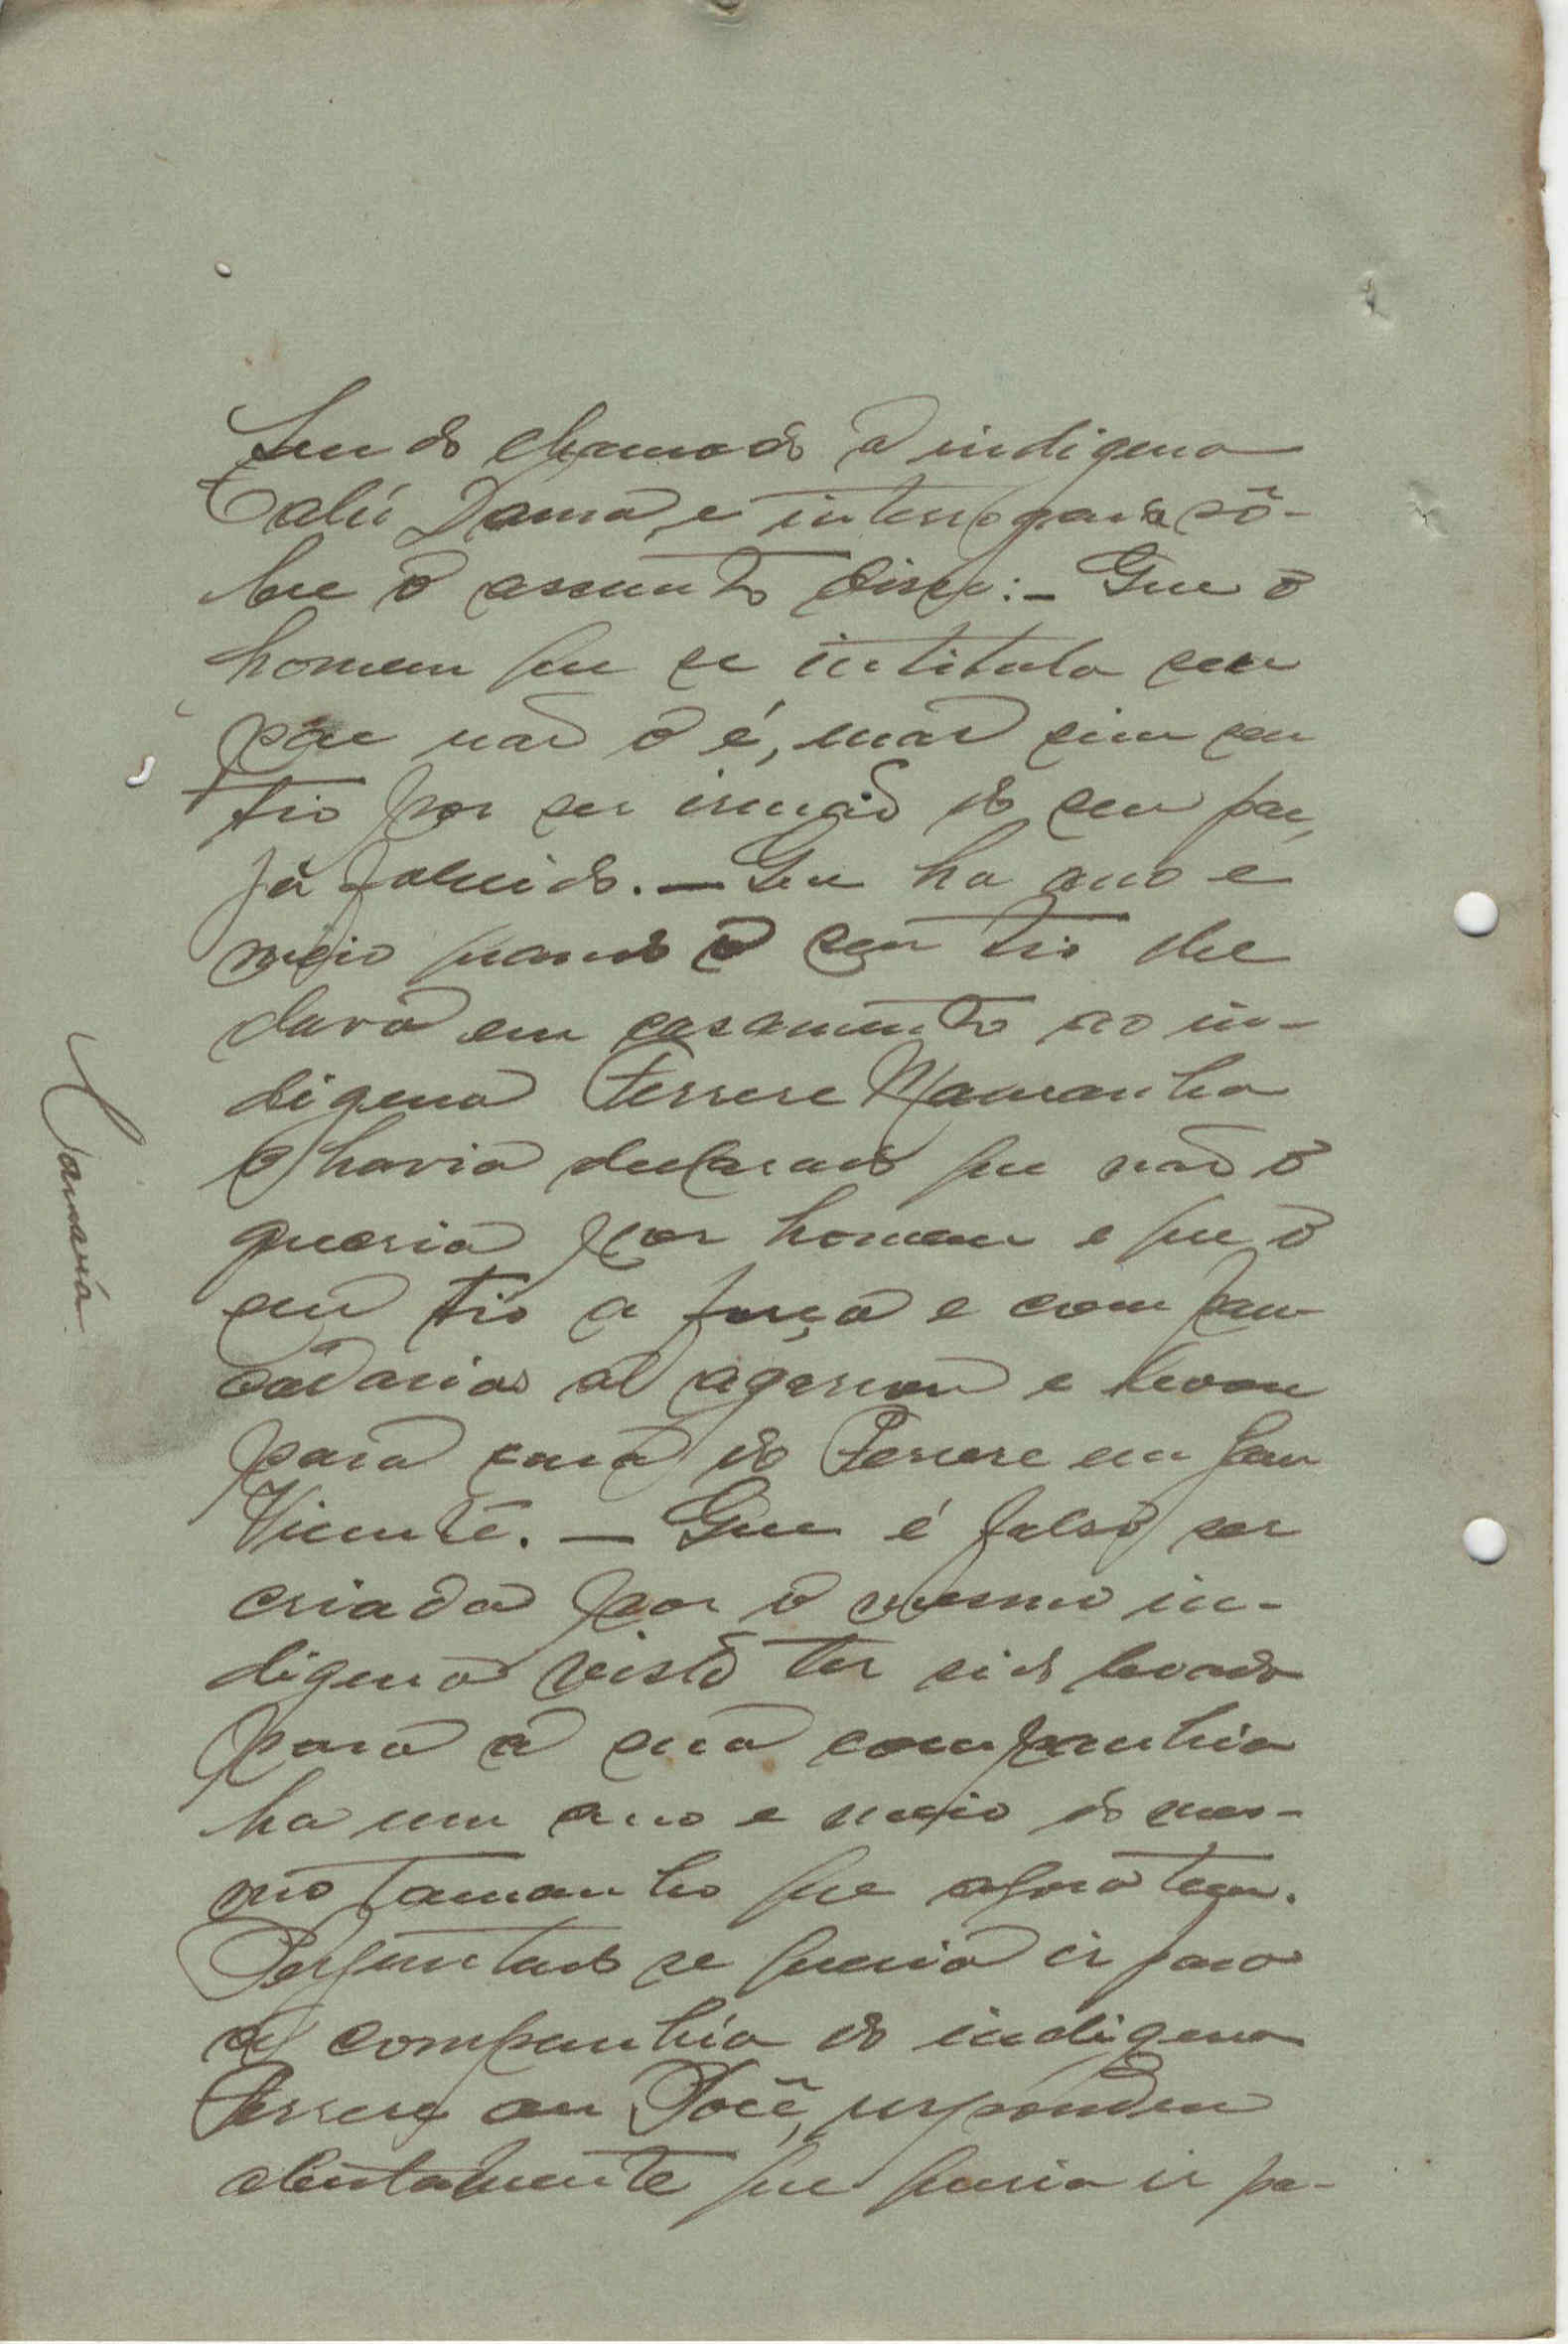 Sendo chamada a indigena
Calú Dama, e interrogada sô-
bre o assunto disse:- Que o
homem que se intitula seu
pae não o é, mas sim seu
tio por ser irmão do seu pae,
já falecido. - Que ha ano e
meio quando o seu tio
dava em casamento ao in-
digena Ferrere Mamanha
havia declarado que não o
queria por homem e que o
seu tio a força e com pan-
cadarias a agarrou e levou
para casa do Ferrere em San
Vicente. - Que é falso ser
criada por o mesmo in-
digena visto ter sido levada
para a sua companhia
ha um ano e meio do mes-
mo tamanho que agora tem.
Perguntado se queria ir para
a companhia do indigena
Ferrere ou respondeu
que queria ir pa-
Camará